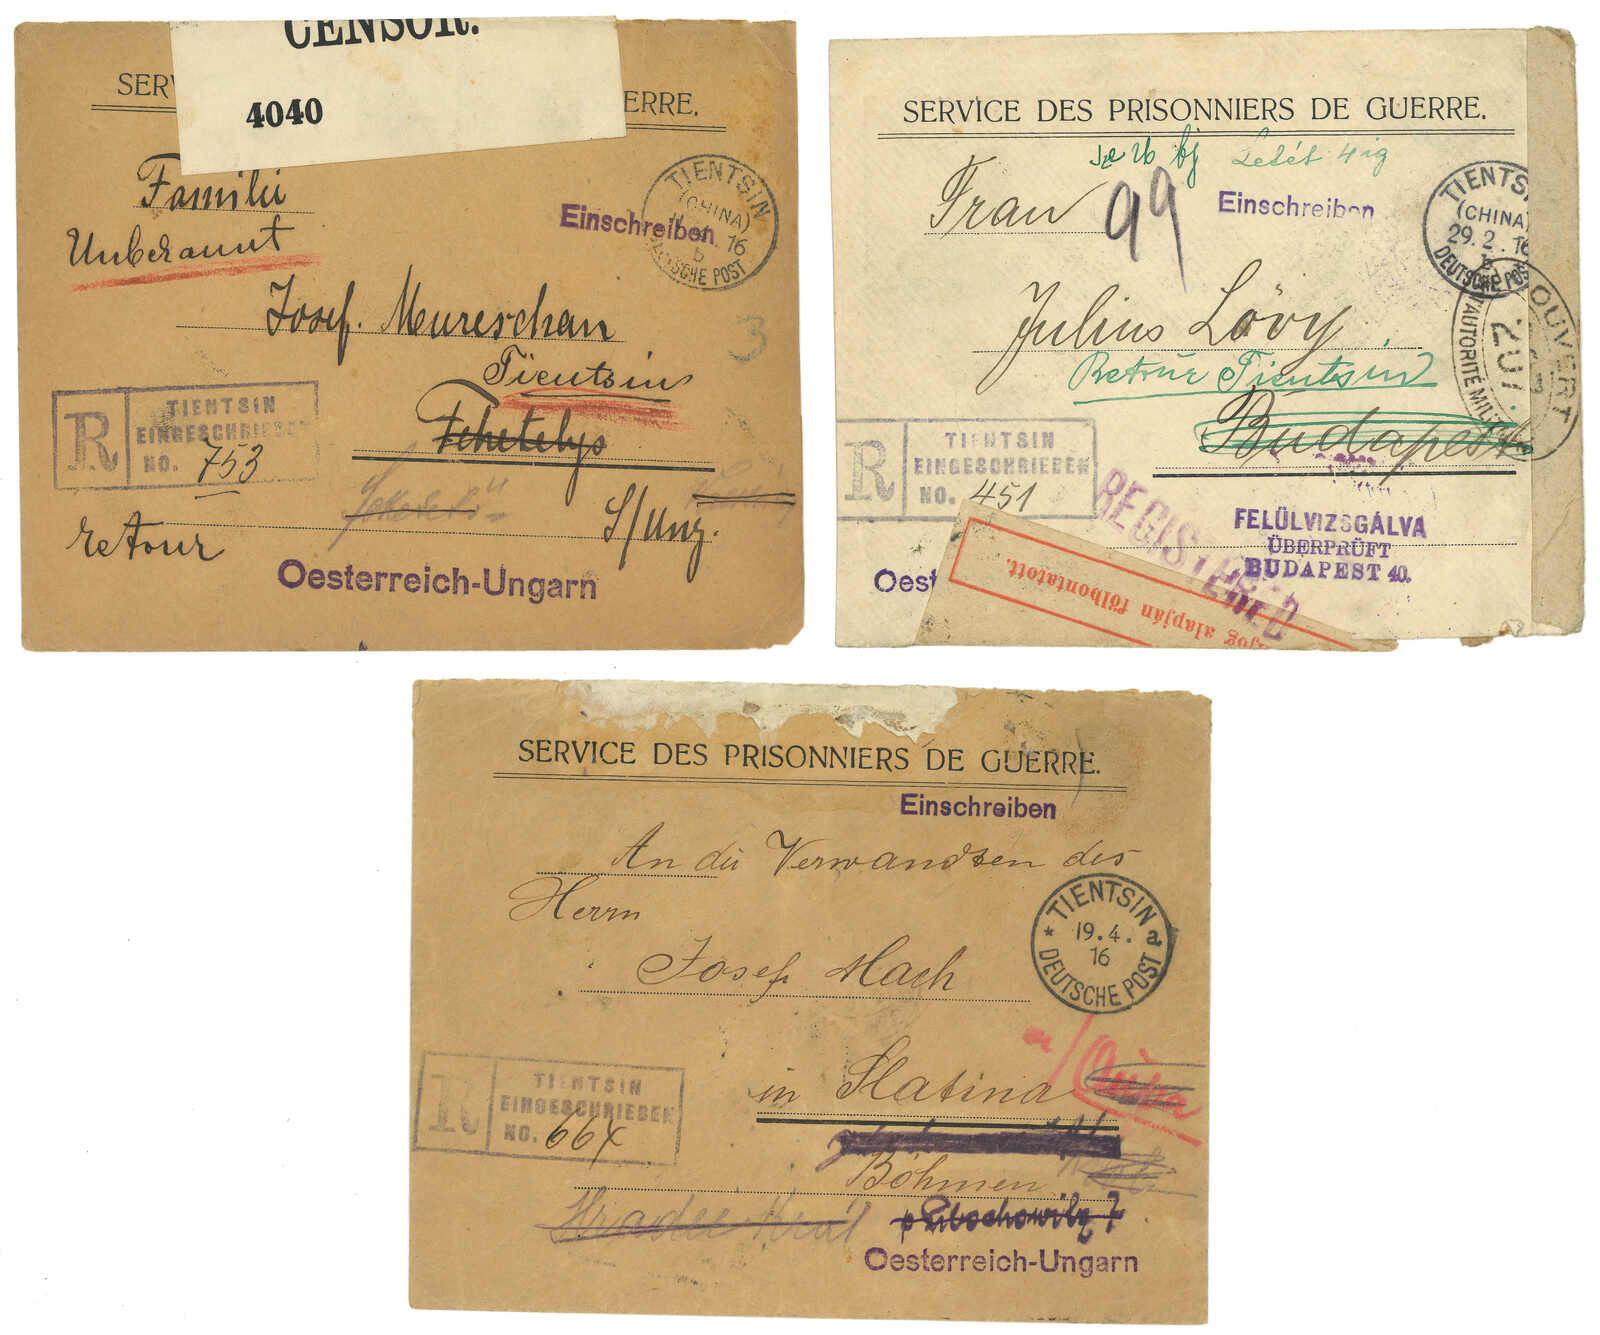 CENSOR.
4040
SER ERRE.
Familie
Unbekannt
Einschreiben
TIENTSIN
(CHINA)
16
b
DEUTSCHE POST
Josef. Mureschan
Tientsin
3
R
TIENTSIN
EINGESCHRIEBEN
NO. 753
Fehetelys
S/Ung.
retour
Oesterreich-Ungarn
SERVICE DES PRISONNIERS DE GUERRE.
Letét 4ig
Frau
99
Einschreiben
TIENTS
(CHINA)
29.2.16
b
DEUTSCHE POS
Julius Lövy
Retour Tientsin
Budapest
OUVERT
L'AUTORITÉ MIL
207
R
TIENTSIN
EINGESCHRIEBEN
NO. 451
REGISTERED
FELÜLVIZSGÁLVA
ÜBERPRÜFT
BUDAPEST 40.
Oest
jog alapján fölbontatott.
SERVICE DES PRISONNIERS DE GUERRE.
Einschreiben
An die Verwandten des
Herrn
Josef Mach
TIENTSIN
* 19.4. a
16
DEUTSCHE POST
in Slatina
R
TIENTSIN
EINGESCHRIEBEN
NO. 664
Böhmen
Hradec Král
p Libochowitz 7
Oesterreich-Ungarn